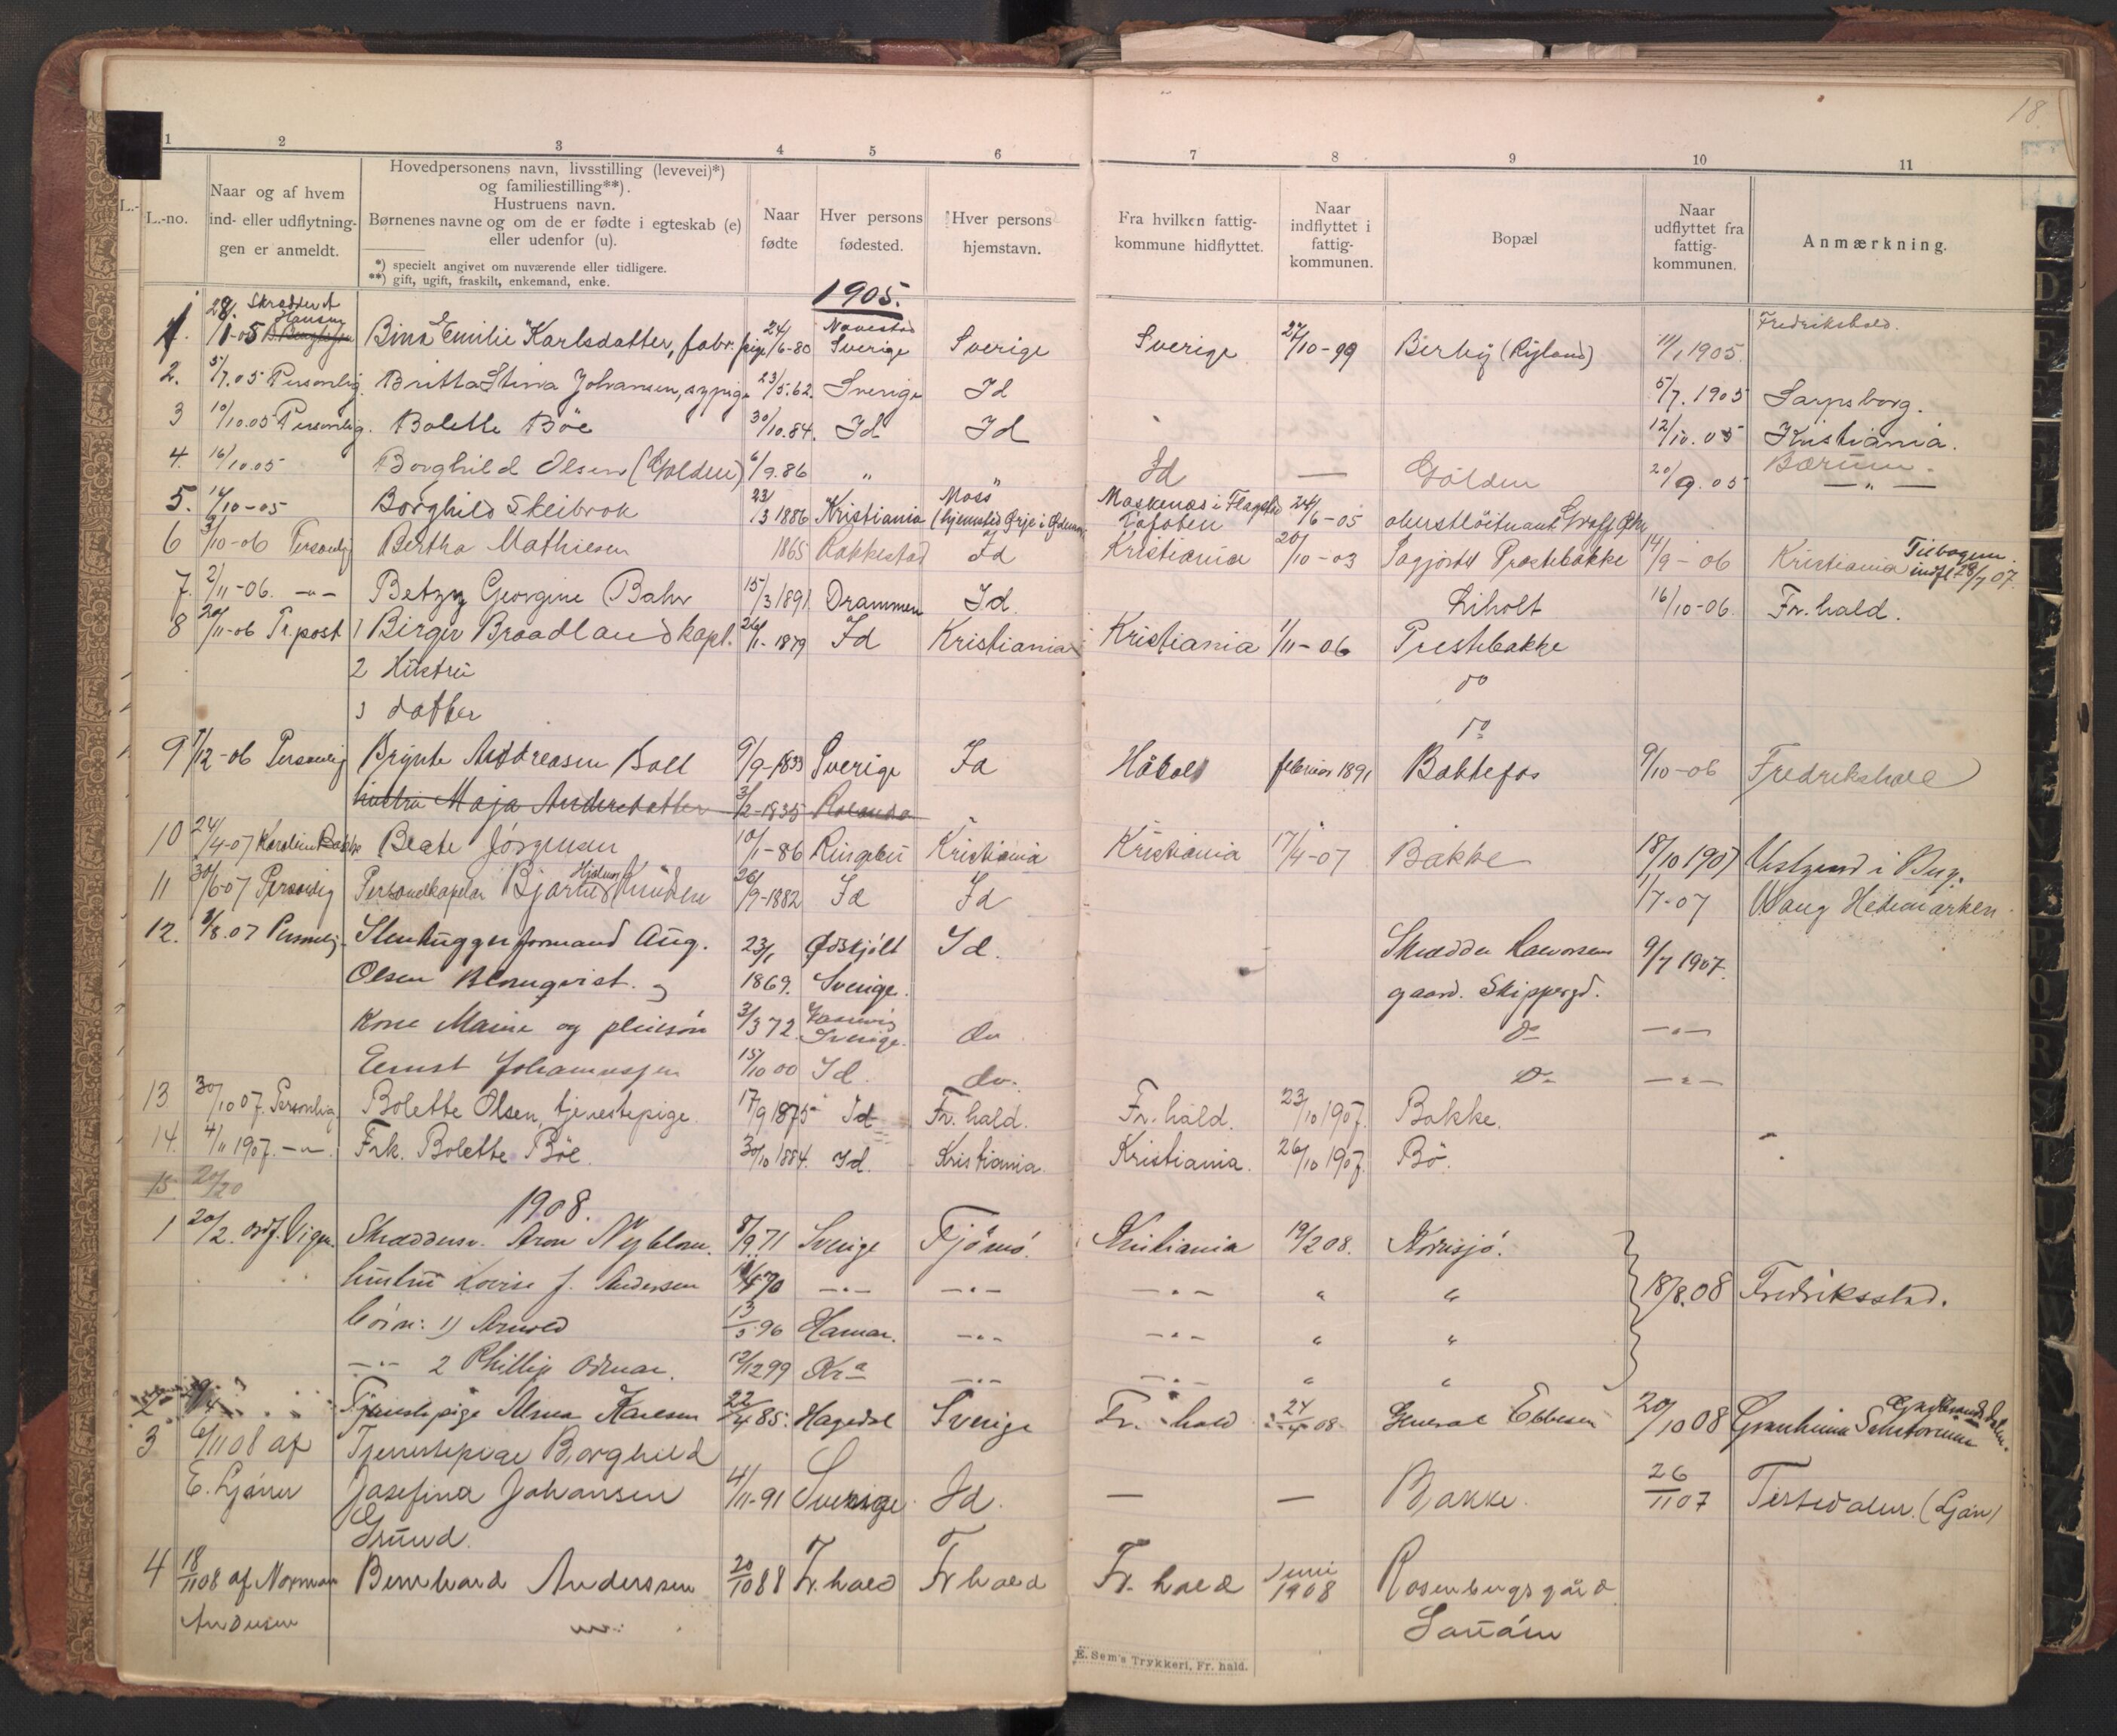 18.
1 2 3 4 5 6 7 8 9 10 11
L.-
L.-no.
Naar og af hvem
ind- eller udflytnin-
gen er anmeldt.
Hovedpersonens navn, livsstilling (levevei)*)
og familiestilling**).
Hustruens navn.
Børnenes navne og om de er fødte i egteskab (e)
eller udenfor (u).
*) specielt angivet om nuværende eller tidligere.
**) gift, ugift, fraskilt, enkemand, enke.
Naar
fødte
Hver persons
fødested.
Hver persons
hjemstavn.
Fra hvilken fattig-
kommune hidflyttet.
Naar
indflyttet i
fattig-
kommunen.
Bopæl
Naar
udflyttet fra
fattig-
kommunen.
Anmærkning.
1905.
Skrædder A Hansen Navestad Fredrikshald.
1. 28/1-05 Bina Emilie Karlsdatter, fabr. pige 24/6-80 Sverige Sverige Sverige 27/10-99 Berby (Ryland) 11/1 1905.
2. 5/7.05 Personlig. Britta Stina Johansen, sypige 23/5.62. Sverige Id 5/7. 1905 Sarpsborg.
3 10/10.05 Personlig. Bolette Böe 30/10.84. Id Id 12/10.05 Kristiania.
4. 16/10.05 Borghild Olsen (Gølden) 6/9.86 " " Id — Gölden 20/9.05 Bærum.
5. 14/10-05 Borghild Skeibrok 23/3 1886 Kristiania Moss (hjemsted Ørje i Ødemar) Moskenæs i Flagstad Lofoten 24/6-05 oberstlöitnant — " —
6 3/10-06 Personlig Bertha Mathiesen 1865 Rakkestad Id Kristiania 20/10-03 Præstebakke 14/9-06 Kristiania Tilbagem. indfl. 28/7 07.
7. 2/11-06. -"- Betzy Georgine Bahr 15/3 1891 Drammen Id. Liholt 16/10-06. Fr.hald.
8 20/11-06 Pr.post 1 Birger Braadland kapt. 26/11-1879 Id Kristiania Kristiania 1/11-06 Prestebakke
2 Hustru do
3 datter do
9 7/12-06 Personlig Brynte Andreasen Boll 9/9-1833 Sverige Id Håbol februar 1891 Bakkefos 9/10-06 Fredrikshald
hustru Maja Andersdatter 3/12-1835
10 24/4-07 Karoline Bakke Beate Jörgensen 10/1-86 Ringebu Kristiania Kristiania 17/4-07 Bakke 18/10 1907 i Bug.
11 30/6-07 Personlig Personelkapelan Bjarne Hjalmar Knudsen 26/9-1882 Id Id 1/7-07 Vang Hedemarken.
12. 8/8.07 Personlig. Stenhuggerformand Aug. 23/1 Ödskjölt Id. Skrædder Halvorsens 9/7 1907.
Olsen Blomqvist. og 1869. Sverige. gaard. Skippergd.
Kone Marie og pleiesön 3/3 72. Sverige. do do —"—
Ernst Johannessen 15/10 00 Id. do. do —"—
13 30/10 07. Personlig Bolette Olsen, tjenestepige. 17/9 1875 Id Fr. hald. Fr. hald. 23/10 1907. Bakke.
14. 4/11 1907. -"- Frk. Bolette Böe. 30/10 1884. Id. Kristiania. Kristiania. 26/10 1907. Bö.
15 20/20
1908.
1 20/2. ordf. Vigen. Skræddersv. Aron Nyblom. 8/9.71 Sverige Tjömö. Kristiania 19/2 08. Kornsjö.
hustru Lovise J. Andersen 70 —"— —"— —"— " " 18/8.08 Fredriksstad.
börn: 1) Arnold 13/5 96 Hamar. —"— —"— " "
—"— 2 Phillip Odmar. 12/12 99 Kr.a —"— —"— " "
2 29/4 Tjenestepige Alma Karlsen 22/4 85. Hagedal Sverige Fr. hald 24/4 08 General Ebbesen 20/10 08 Granheim Sanatorium Gudbrandsdalen.
3 6/11 08 af Tjenestepige Borghild
E. Ljåner Josefina Johansen 4/11-91 Sverige. Id. — — Bakke. 26/11 07 Tistedalen. (Ljån)
Grund.
4 18/11 08 af Norman Bernhard Anderssen 20/10 88 Fr. hald Fr hald Fr. hald Juni 1908 Rosenbergsgård
Andersen
E. Sem's Trykkeri, Fr. hald.